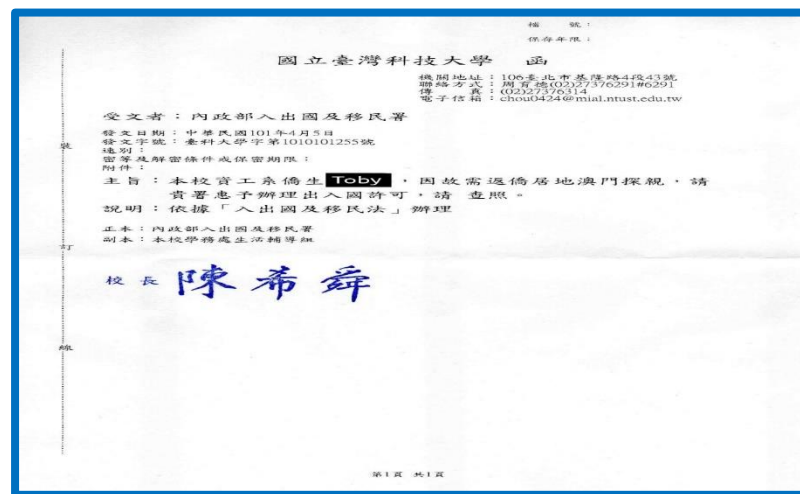 檔　　號：
保存年限：
國立臺灣科技大學　函
機關地址：106臺北市基隆路4段43號
聯絡方式：周育德(02)27376291#6291
傳　　真：(02)27376314
電子信箱：chou0424@mial.ntust.edu.tw
受文者：內政部入出國及移民署
發文日期：中華民國101年4月5日
發文字號：臺科大學字第1010101255號
速別：
密等及解密條件或保密期限：
附件：
主旨：本校資工系僑生 Toby ，因故需返僑居地澳門探親，請
貴署惠予辦理出入國許可，請 查照。
說明：依據「入出國及移民法」辦理
正本：內政部入出國及移民署
副本：本校學務處生活輔導組
校長 陳希舜
裝
訂
線
第1頁 共1頁